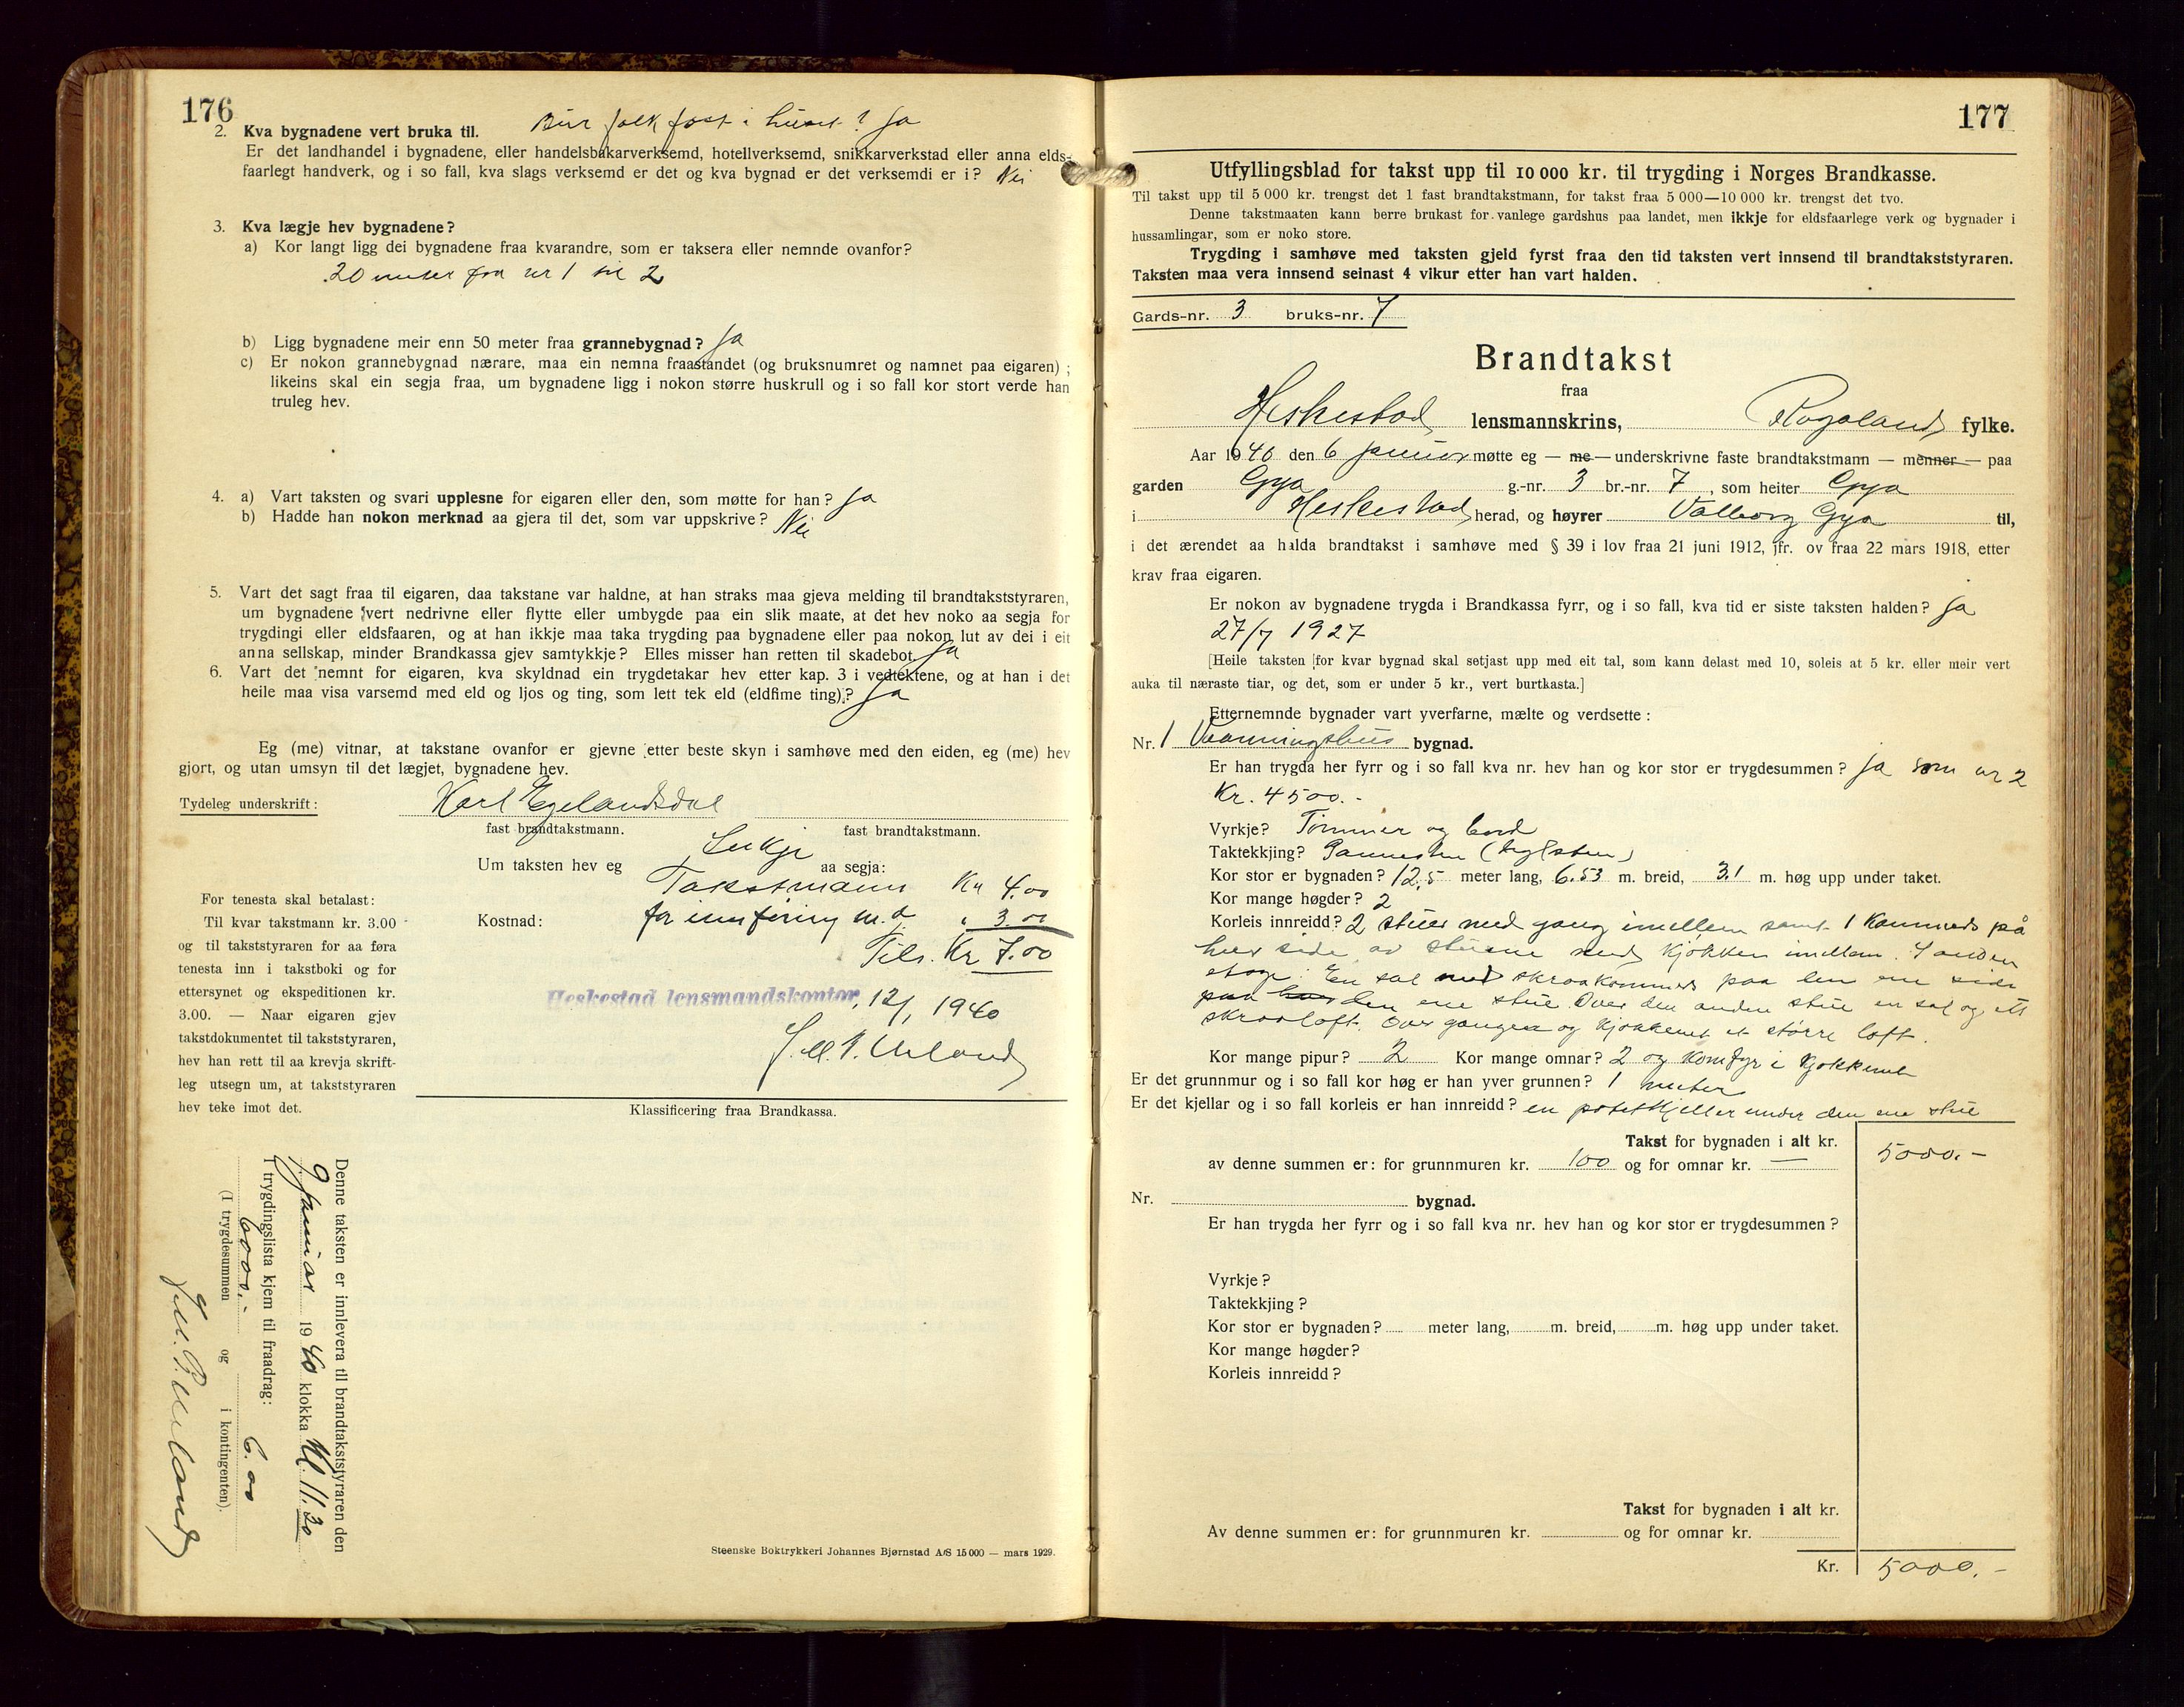 176
2. Kva bygnadene vert bruka til. Bur folk fast i huset? Ja
Er det landhandel i bygnadene, eller handelsbakarverksemd, hotellverksemd, snikkarverkstad eller anna elds-
faarlegt handverk, og i so fall, kva slags verksemd er det og kva bygnad er det verksemdi er i? Nei
3. Kva lægje hev bygnadene?
a) Kor langt ligg dei bygnadene fraa kvarandre, som er taksera eller nemnde ovanfor?
20 meter fra nr 1 til 2
b) Ligg bygnadene meir enn 50 meter fraa grannebygnad? Ja
c) Er nokon grannebygnad nærare, maa ein nemna fraastandet (og bruksnumret og namnet paa eigaren) ;
likeins skal ein segja fraa, um bygnadene ligg i nokon større huskrull og i so fall kor stort verde han
truleg hev.
4. a) Vart taksten og svari upplesne for eigaren eller den, som møtte for han? Ja
b) Hadde han nokon merknad aa gjera til det, som var uppskrive? Nei
5. Vart det sagt fraa til eigaren, daa takstane var haldne, at han straks maa gjeva melding til brandtakststyraren,
um bygnadene vert nedrivne eller flytte eller umbygde paa ein slik maate, at det hev noko aa segja for
trygdingi eller eldsfaaren, og at han ikkje maa taka trygding paa bygnadene eller paa nokon lut av dei i eit
anna sellskap, minder Brandkassa gjev samtykkje? Elles misser han retten til skadebot. Ja
6. Vart det nemnt for eigaren, kva skyldnad ein trygdetakar hev etter kap. 3 i vedtektene, og at han i det
heile maa visa varsemd med eld og ljos og ting, som lett tek eld (eldfime ting)? Ja
Eg (me) vitnar, at takstane ovanfor er gjevne etter beste skyn i samhøve med den eiden, eg (me) hev
gjort, og utan umsyn til det lægjet, bygnadene hev.
Tydeleg underskrift: Karl Egelandsdal
fast brandtakstmann. fast brandtakstmann.
Um taksten hev eg Inkje aa segja:
Takstmann Kr 4.00
Kostnad: for innføring m.d. " 3.00
Tils. Kr 7.00
For tenesta skal betalast:
Til kvar takstmann kr. 3.00
og til takststyraren for aa føra
tenesta inn i takstboki og for
ettersynet og ekspeditionen kr.
3.00. — Naar eigaren gjev
takstdokumentet til takststyraren,
hev han rett til aa krevja skrift-
leg utsegn um, at takststyraren
hev teke imot det.
Heskestad lensmandskontor, 12/1 1940
Klassificering fraa Brandkassa.
Denne taksten er innlevera til brandtakststyraren den
9 januar 1940 klokka Kl. 11.30
I trygdingslista kjem til fraadrag:
6000.- 6.00
(I trygdesummen og i kontingenten).
Steenske Boktrykkeri Johannes Bjørnstad A/S 15 000 — mars 1929.
177
Utfyllingsblad for takst upp til 10 000 kr. til trygding i Norges Brandkasse.
Til takst upp til 5 000 kr. trengst det 1 fast brandtakstmann, for takst fraa 5 000—10 000 kr. trengst det tvo.
Denne takstmaaten kann berre brukast for vanlege gardshus paa landet, men ikkje for eldsfaarlege verk og bygnader i
hussamlingar, som er noko store.
Trygding i samhøve med taksten gjeld fyrst fraa den tid taksten vert innsend til brandtakststyraren.
Taksten maa vera innsend seinast 4 vikur etter han vart halden.
Gards-nr. 3 bruks-nr. 7
Brandtakst
fraa
Heskestad lensmannskrins, Rogaland fylke.
Aar 1940 den 6 januar møtte eg — me — underskrivne faste brandtakstmann — menner — paa
garden Gya g.-nr. 3 br.-nr. 7, som heiter Gya
i Heskestad herad, og høyrer Valborg Gya til,
i det ærendet aa halda brandtakst i samhøve med § 39 i lov fraa 21 juni 1912, jfr. ov fraa 22 mars 1918, etter
krav fraa eigaren.
Er nokon av bygnadene trygda i Brandkassa fyrr, og i so fall, kva tid er siste taksten halden? Ja
27/7 1927
[Heile taksten for kvar bygnad skal setjast upp med eit tal, som kann delast med 10, soleis at 5 kr. eller meir vert
auka til næraste tiar, og det, som er under 5 kr., vert burtkasta.]
Etternemnde bygnader vart yverfarne, mælte og verdsette :
Nr. 1 Vaanningshus bygnad.
Er han trygda her fyrr og i so fall kva nr. hev han og kor stor er trygdesummen? Ja som nr 2
Kr. 4500.-
Vyrkje? Tømmer og bord
Taktekkjing? Pannesten (teglsten)
Kor stor er bygnaden? 12,5 meter lang, 6.53 m. breid, 3.1 m. høg upp under taket.
Kor mange høgder? 2
Korleis innreidd? 2 stuer med gang imellem samt 1 kammers på
hver side av stuene med kjøkken imellem. I anden
etage: En sal med skraakammers paa den ene side
paa hver den ene stue. Over den anden stue en sal og ett
skraaloft. Over gangen og kjøkkenet et større loft.
Kor mange pipur? 2 Kor mange omnar? 2 og komfyr i kjøkkenet
Er det grunnmur og i so fall kor høg er han yver grunnen? 1 meter
Er det kjellar og i so fall korleis er han innreidd? en potetkjeller under den ene stue
Takst for bygnaden i alt kr. 5000.-
av denne summen er: for grunnmuren kr. 100 og for omnar kr. —
Nr. bygnad.
Er han trygda her fyrr og i so fall kva nr. hev han og kor stor er trygdesummen ?
Vyrkje ?
Taktekkjing ?
Kor stor er bygnaden? meter lang, m. breid, m. høg upp under taket.
Kor mange høgder?
Korleis innreidd ?
Takst for bygnaden i alt kr.
Av denne summen er: for grunnmuren kr. og for omnar kr.
Kr. 5000.-